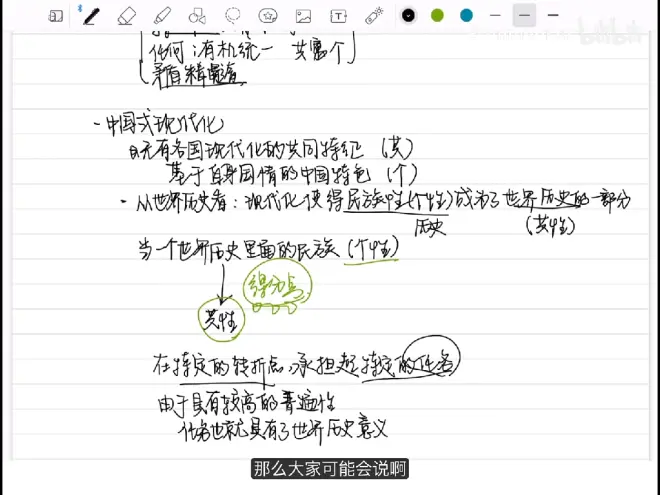 任何：有机统一 共富个
矛、精、鬼者
-中国式现代化
既有各国现代化的共同特征（共）
基于自身国情的中国特色（个）
-从世界历史看：现代化使得民族性（个性）成为了世界历史的一部分
历史
（共性）
当一个世界历史里面的民族（个性）
得分点
共性
在特定的转折点，承担起特定的任务
由于具有较高的普遍性
任务也就具有了世界历史意义
那么大家可能会说啊